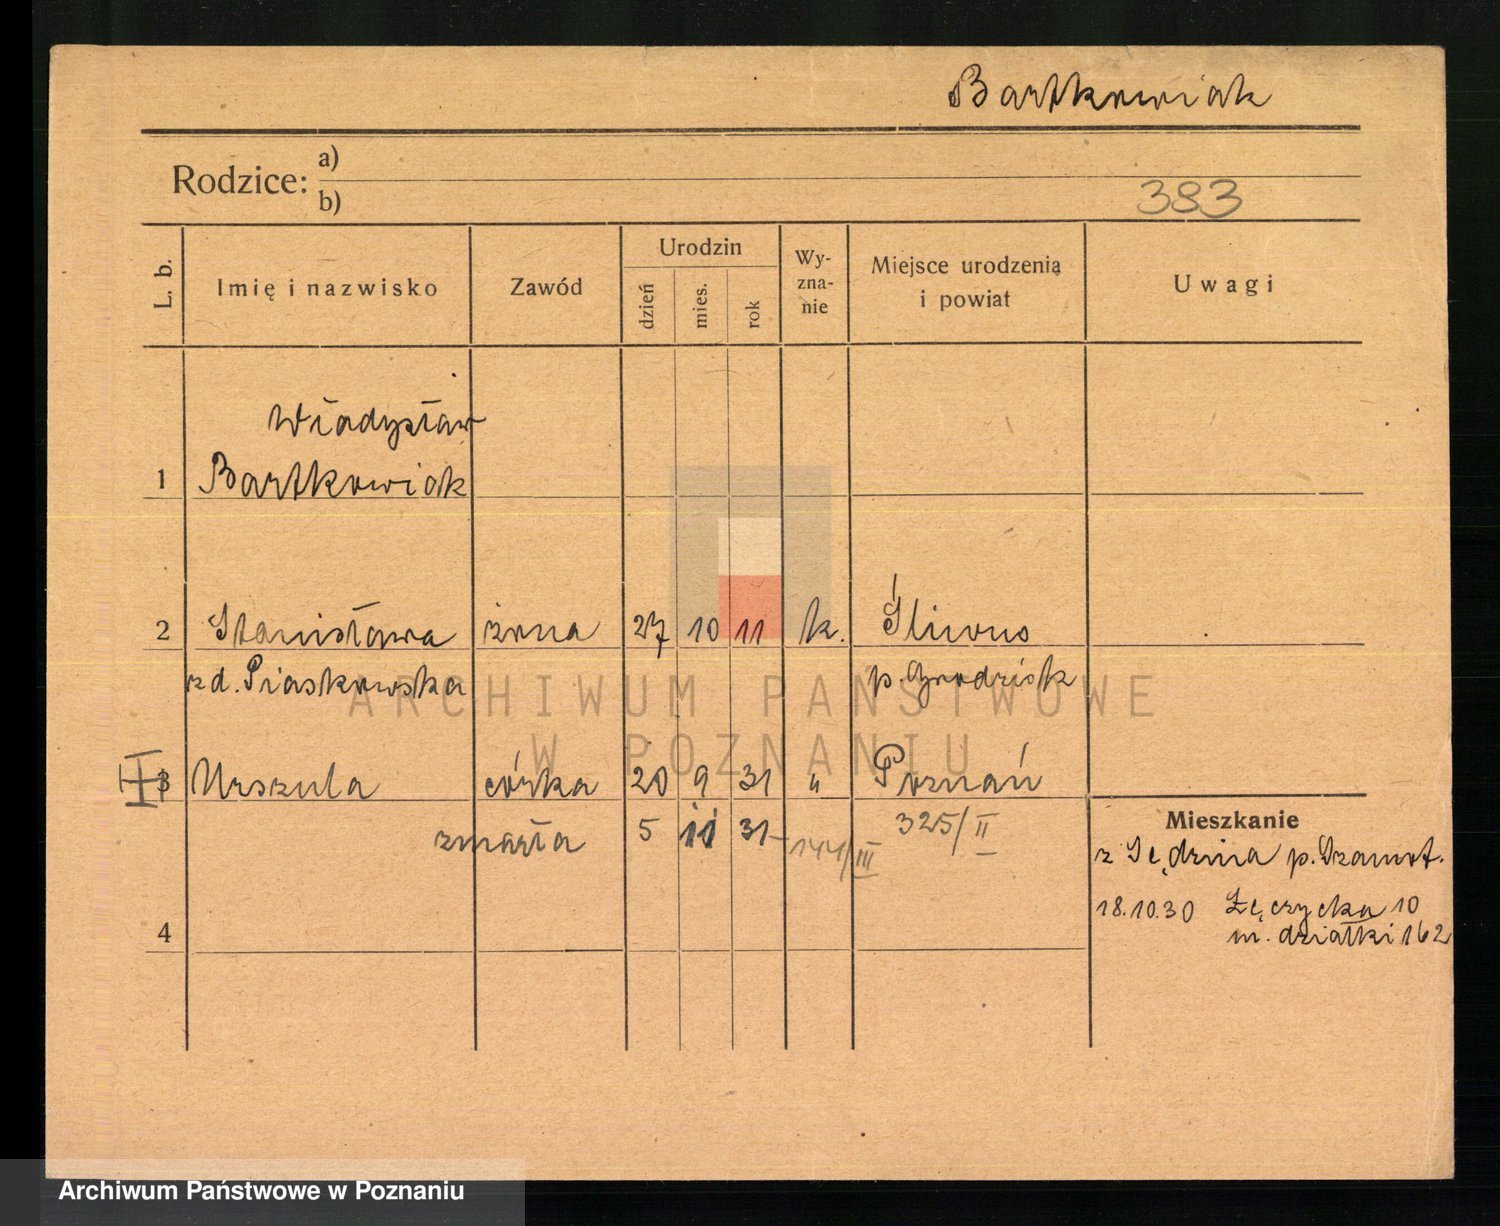 Bartkowiak
Rodzice: a)
b)
383
L. b. Imię i nazwisko Zawód Urodzin dzień mies. rok Wy-zna-nie Miejsce urodzenia i powiat Uwagi
Władysław
1 Bartkowiak
2 Stanisława żona 27 10 11 k. Śliwno
zd. Piaskowska p. Grodzisk
ARCHIWUM PAŃSTWOWE
W POZNANIU
3 Urszula córka 20 9 31 " Poznań
zmarła 5 11 31 - 144/III 325/II
Mieszkanie
z Sędzina p. Szamot.
18.10.30 Łęczycka 10
4 m. działki 162
Archiwum Państwowe w Poznaniu